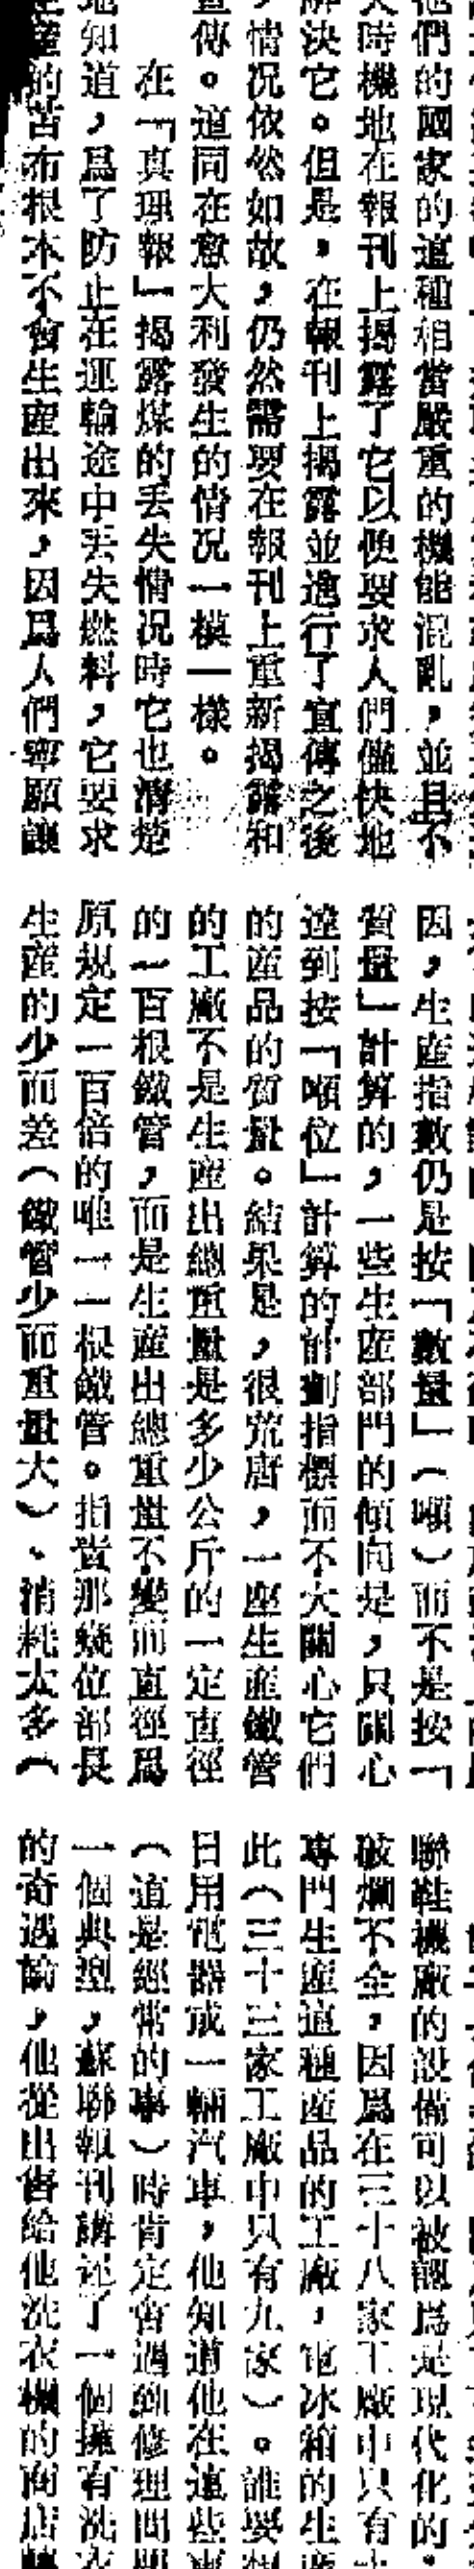 們的國家的這種相當嚴重的機能混亂，並且不
時機地在報刊上揭露了它以便要求人們儘快地
解決它。但是，在報刊上揭露並進行了宣傳之後
，情况依然如故，仍然需要在報刊上重新揭露和
宣傳。這同在意大利發生的情况一模一樣。
在「真理報」揭露煤的丢失情况時它也清楚
地知道，爲了防止在運輸途中丢失燃料，它要求
生產的苫布根本不會生產出來，因爲人們寧願讓
因，生產指數仍是按「數量」（噸）而不是按「
質量」計算的，一些生產部門的傾向是，只關心
達到按「噸位」計算的計劃指標而不大關心它們
的產品的質量。結果是，很荒唐，一座生產鐵管
的工廠不是生產出總重量是多少公斤的一定直徑
的一百根鐵管，而是生產出總重量不變而直徑爲
原規定一百倍的唯一一根鐵管。指責那幾位部長
生產的少而差（鐵管少而重量大）、消耗太多（
聯鞋機廠的設備可以被認爲是現代化的，
破爛不全，因爲在三十八家工廠中只有
專門生產這種產品的工廠，電冰箱的生產
此（三十三家工廠中只有九家）。誰要
日用電器或一輛汽車，他知道他在這些
（這是經常的事）時肯定會遇到修理問題
一個典型，蘇聯報刊講述了一個擁有洗衣
的奇遇諭，他從出售給他洗衣機的商店